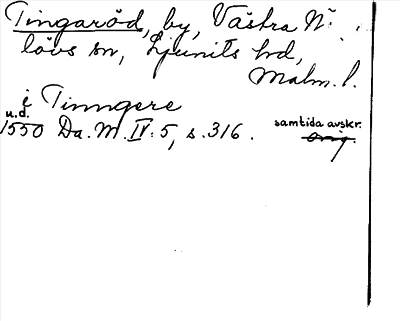 Tingaröd, by, Västra N:
lövs sn, Ljunits hd,
Malm. l.
i Tinngere
u.d.
1550 Da. M. IV: 5, s. 316.
samtida avskr.
orig.